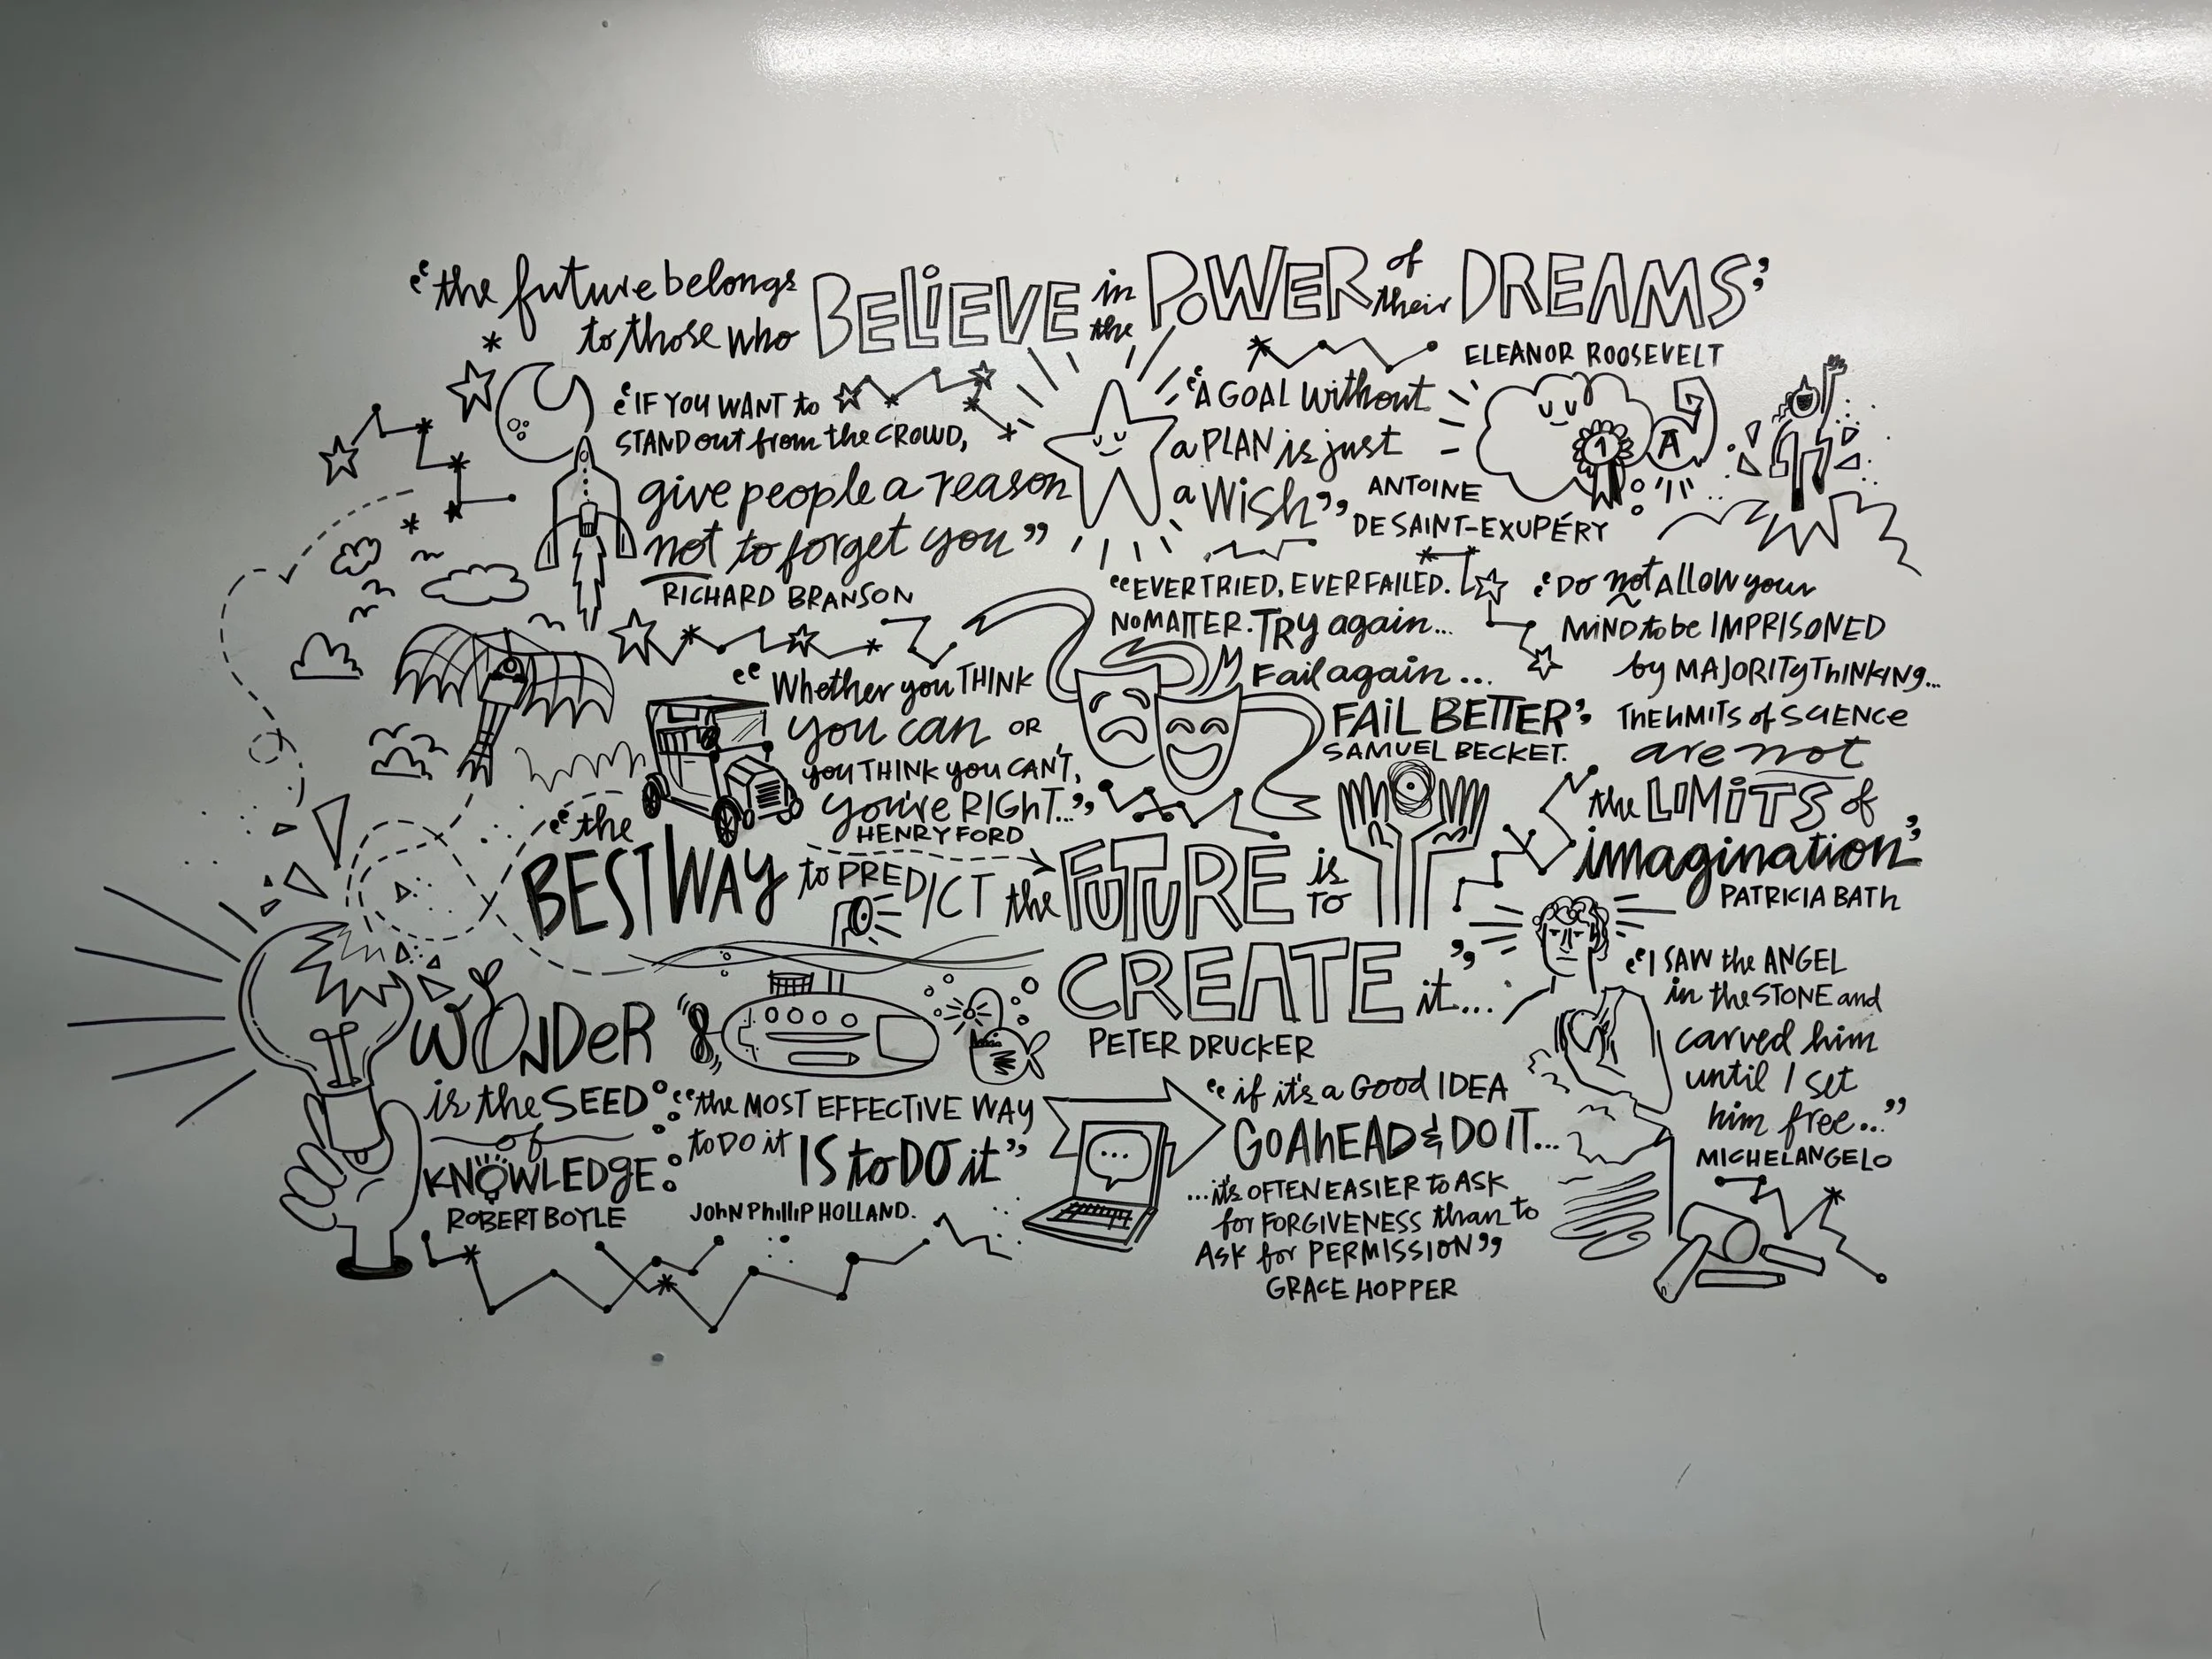 “the future belongs
to those who BELIEVE in the POWER of their DREAMS”
ELEANOR ROOSEVELT
“IF YOU WANT to
STAND out from the CROWD,
give people a reason
not to forget you”
RICHARD BRANSON
“A GOAL without
a PLAN is just
a Wish”
ANTOINE
DE SAINT-EXUPÉRY
1
A
“EVER TRIED, EVER FAILED.
NO MATTER. TRY again...
Fail again...
FAIL BETTER”
SAMUEL BECKET.
“Do not ALLOW your
MIND to be IMPRISONED
by MAJORITY THINKING...
THE LIMITS of SCIENCE
are not
the LIMITS of
imagination”
PATRICIA BATH
“Whether you THINK
you can OR
you THINK you CAN'T,
you're RIGHT...”
HENRY FORD
“the
BEST WAY to PREDICT the FUTURE is TO
CREATE it...”
PETER DRUCKER
“I SAW the ANGEL
in the STONE and
carved him
until I set
him free...”
MICHELANGELO
WONDER
is the SEED
of
KNOWLEDGE
ROBERT BOYLE
“the MOST EFFECTIVE WAY
to DO it IS to DO it”
JOHN PHILLIP HOLLAND.
...
“if it's a GOOD IDEA
GO AHEAD & DO IT...
...it's OFTEN EASIER to ASK
for FORGIVENESS than to
ASK for PERMISSION”
GRACE HOPPER